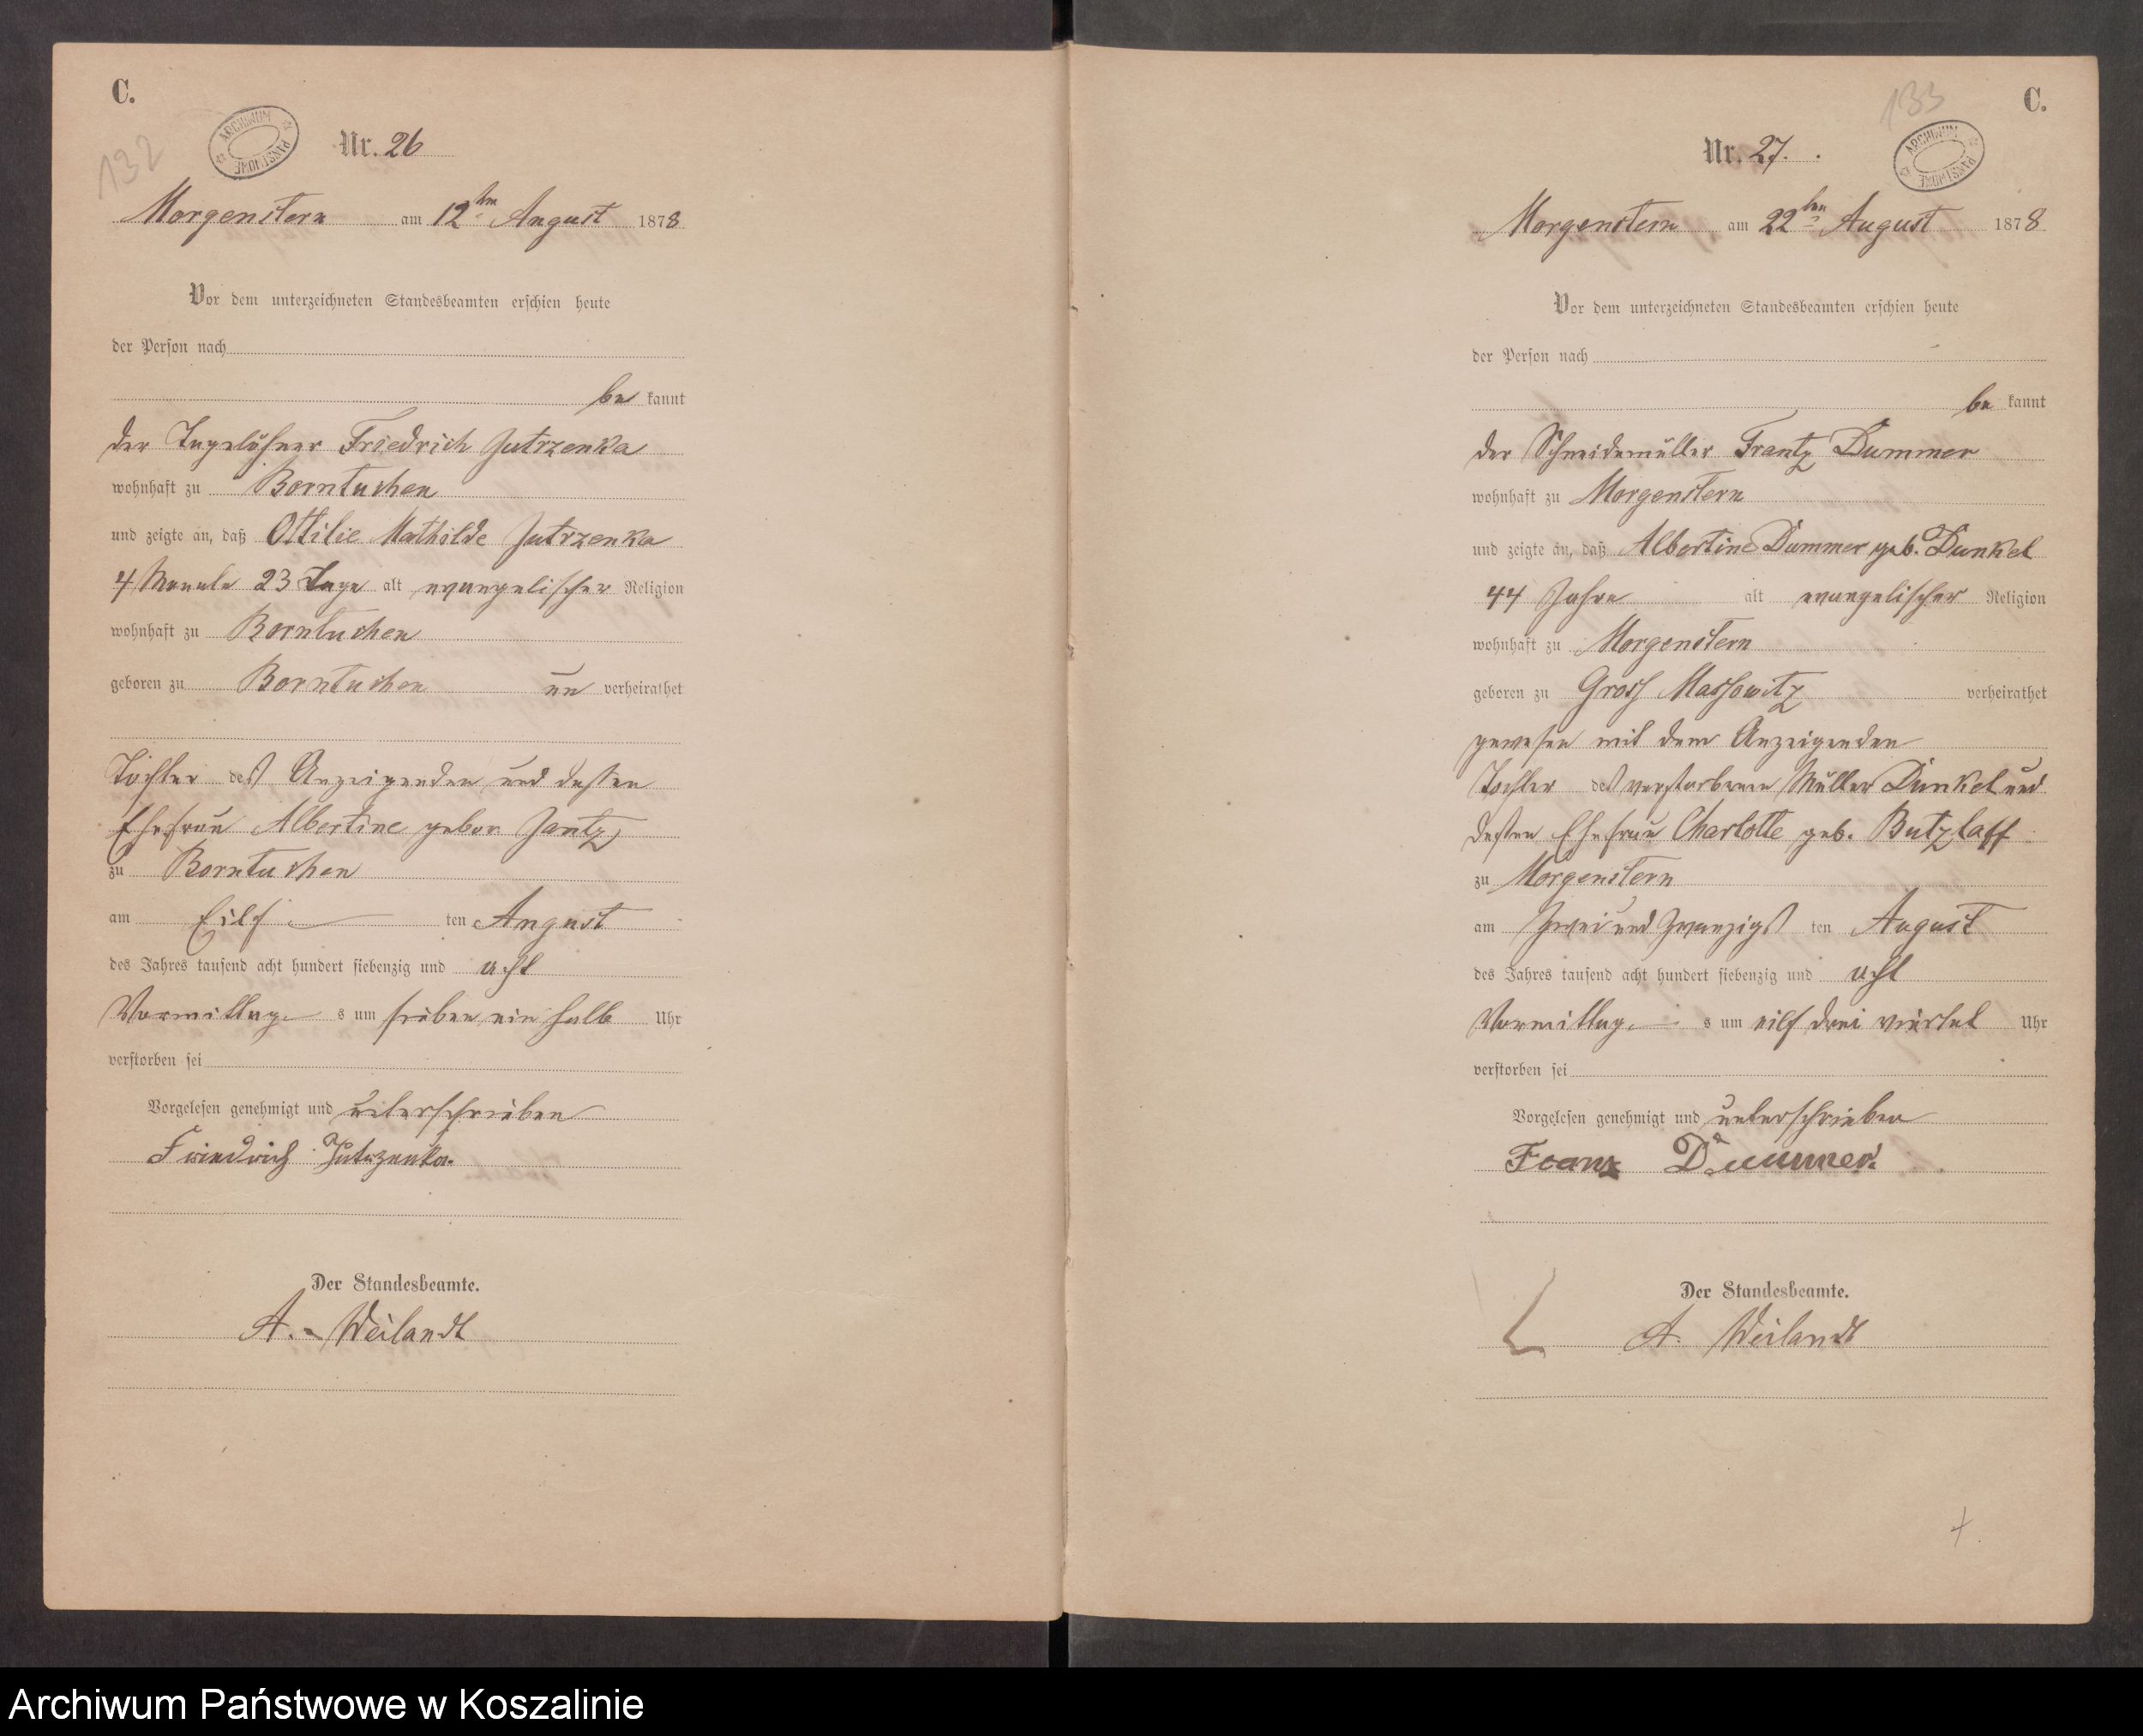 C.
132
ARCHIWUM PAŃSTWOWE
Nr. 26
Morgenstern am 12ten August 1878
Vor dem unterzeichneten Standesbeamten erschien heute
der Person nach
be kannt
der Tagelöhner Friedrich Jutrzenka
wohnhaft zu Borntuchen
und zeigte an, daß Ottilie Mathilde Jutrzenka
4 Monate 23 Tage alt evangelischer Religion
wohnhaft zu Borntuchen
geboren zu Borntuchen un verheirathet
Tochter des Anzeigenden und dessen
Ehefrau Albertine gebor. Jantz
zu Borntuchen
am Eilf ten August
des Jahres tausend acht hundert siebenzig und acht
Vormittag s um sieben ein halb Uhr
verstorben sei
Vorgelesen genehmigt und unterschrieben
Friedrich Jutrzenka.
Der Standesbeamte.
A. Weilandt
C.
133
ARCHIWUM PAŃSTWOWE
Nr. 27.
Morgenstern am 22ten August 1878
Vor dem unterzeichneten Standesbeamten erschien heute
der Person nach
be kannt
der Schneidemüller Frantz Dummer
wohnhaft zu Morgenstern
und zeigte an, daß Albertine Dummer geb. Dunkel
44 Jahre alt evangelischer Religion
wohnhaft zu Morgenstern
geboren zu Gross Massowitz verheirathet
gewesen mit dem Anzeigenden
Tochter des verstorbenen Müller Dunkel und
dessen Ehefrau Charlotte geb. Butzlaff
zu Morgenstern
am Zwei und Zwanzigs ten August
des Jahres tausend acht hundert siebenzig und acht
Vormittag s um eilf drei viertel Uhr
verstorben sei
Vorgelesen genehmigt und unterschrieben
Franz Dummer.
Der Standesbeamte.
A. Weilandt
Archiwum Państwowe w Koszalinie